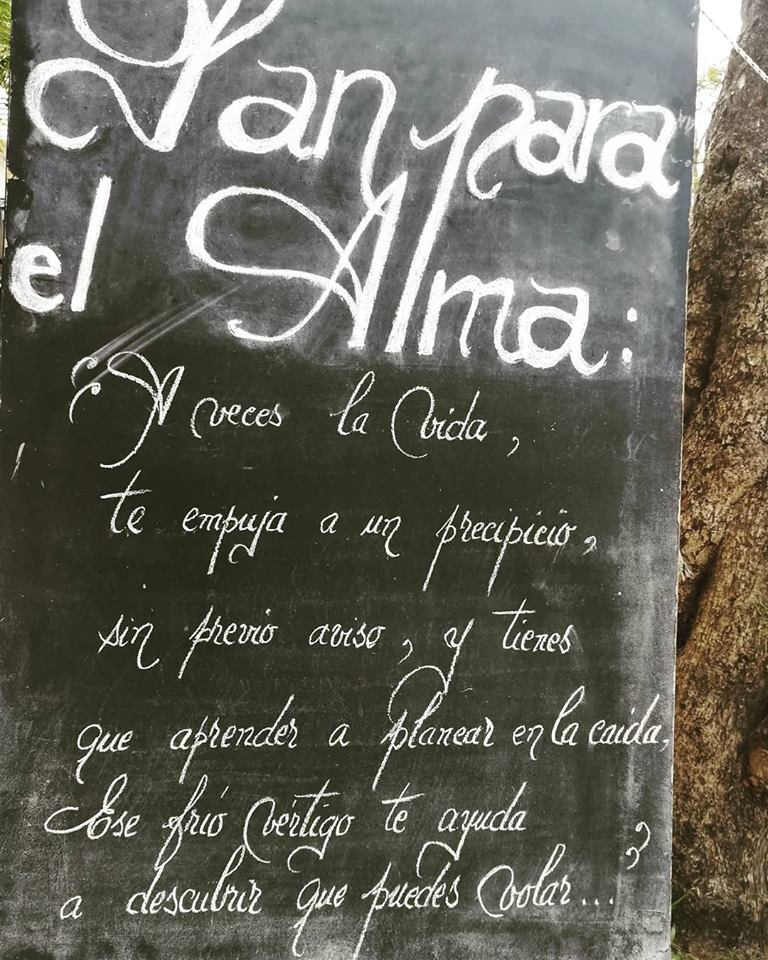 Pan para
el Alma:
"A veces la vida,
te empuja a un precipicio,
sin previo aviso, y tienes
que aprender a planear en la caida,
Ese frió vértigo te ayuda
a descubrir que puedes volar..."